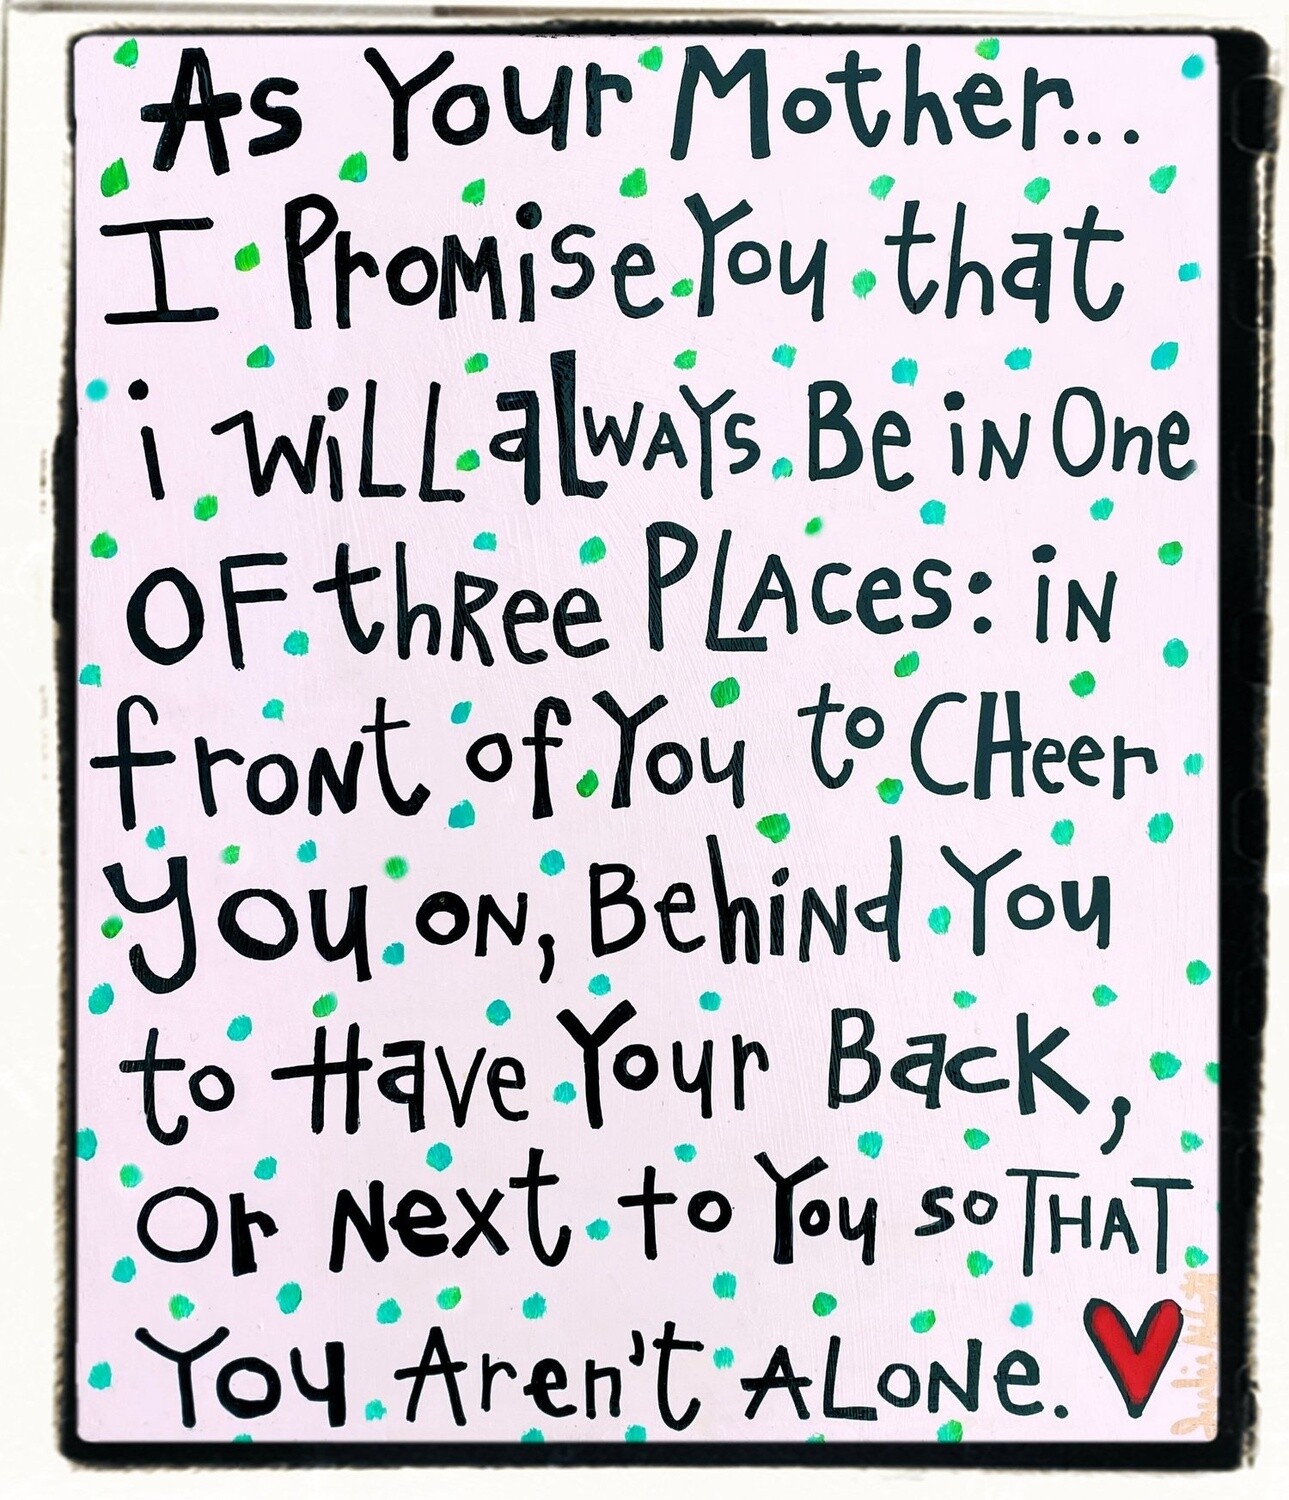 As Your Mother...
I PromisE You that
i will always Be in One
OF three PLAces: in
front of You to CHeer
you on, Behind You
to Have Your Back,
Or Next to You so THAT
You Aren't ALone.